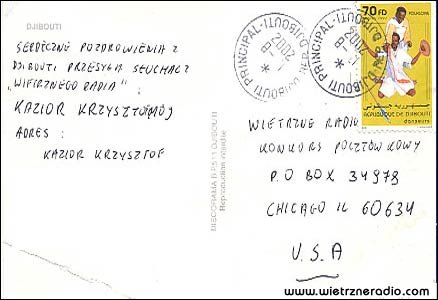 DJIBOUTI
SERDECZNE POZDROWIENIA Z
DJIBOUTI PRZESYŁA SŁUCHACZ
WIETRZNEGO RADIA"
KAZIOR KRZYSZTOF MÓJ
ADRES :
KAZIOR KRZYSZTOF
DJIBOUTI
Reproduction interdite
DJIBOUTI PRINCIPAL
2002
DJIBOUTI PRINCIPAL
2002
70 FD
FOLKLORE
REPUBLIQUE DE DJIBOUTI
danseurs
WIETRZNE RADIO
KONKURS POCZTÓWKOWY
P.O BOX 34978
CHICAGO IL 60634
U.S.A
www.wietrzneradio.com